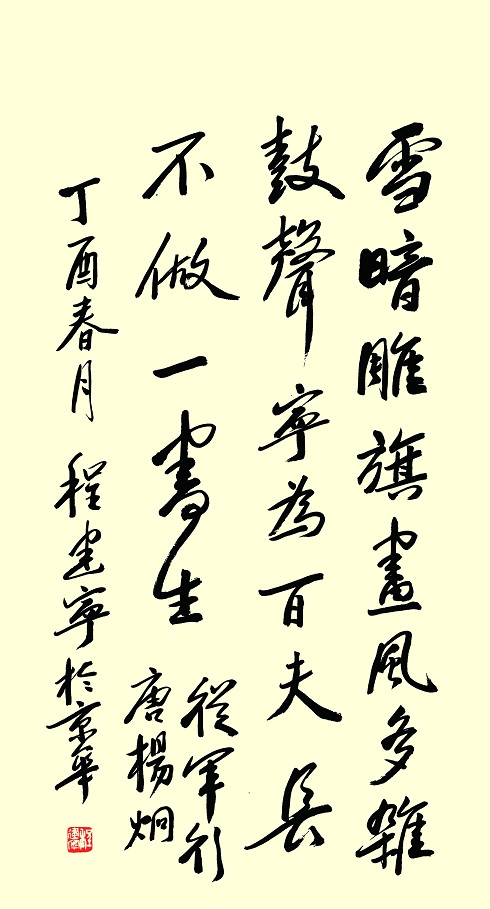 雪暗雕旗畫風多雜
鼓聲寧為百夫長
不做一書生
從軍行
唐楊炯
丁酉春月 程建寧於京華